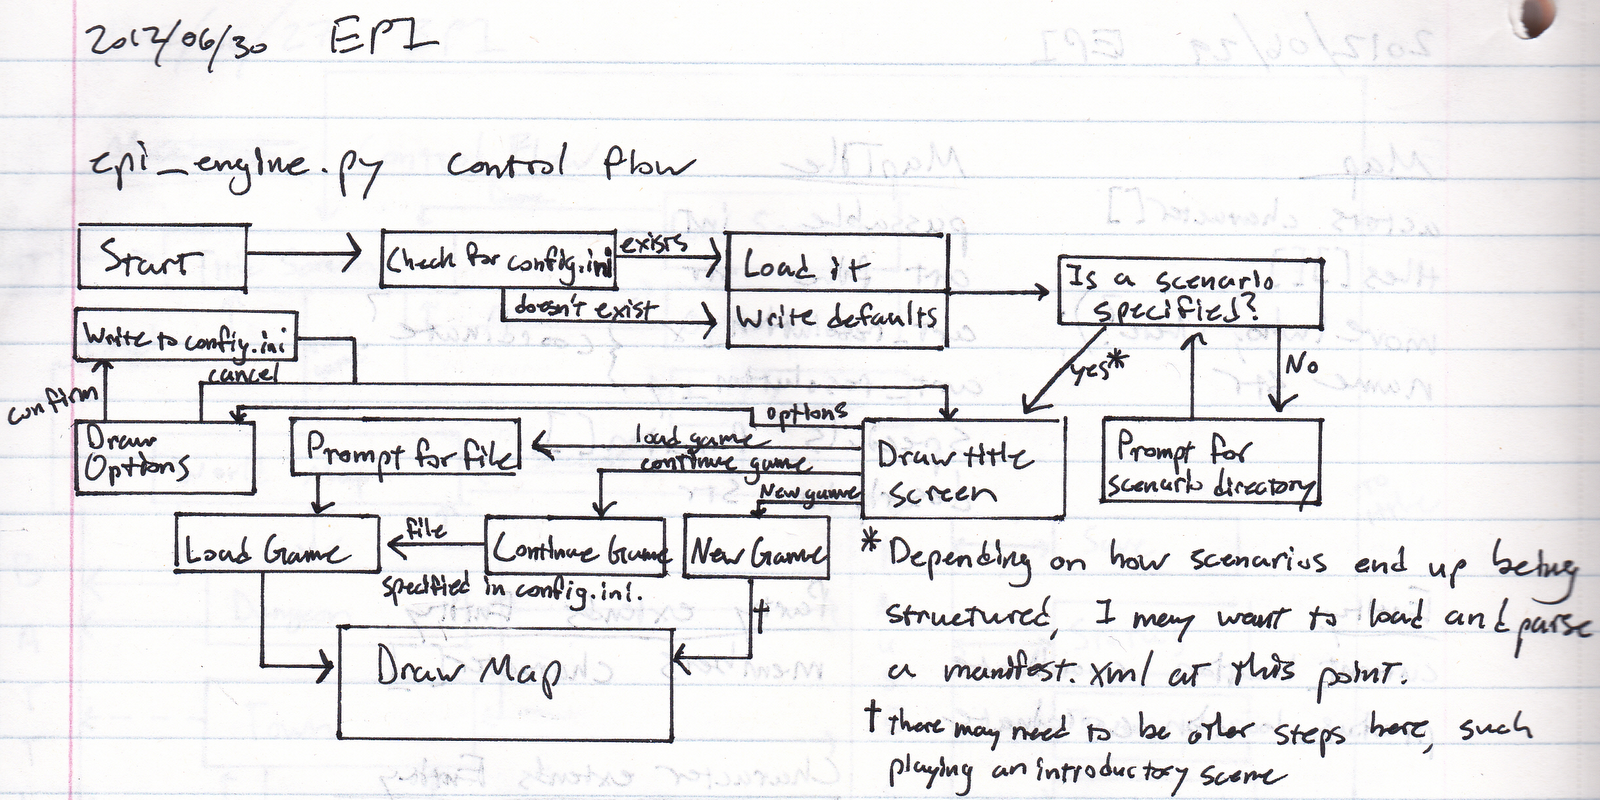 2012/06/30 EPI
epi_engine.py control flow
Start
Check for config.ini
exists
doesn't exist
Load it
Write defaults
Is a scenario
specified?
yes*
No
Prompt for
scenario directory
Write to config.ini
cancel
confirm
Draw
Options
Prompt for file
options
load game
continue game
New game
Draw title
screen
Load Game
file
specified in config.ini.
Continue Game
New Game
†
Draw Map
* Depending on how scenarios end up being
structured, I may want to load and parse
a manifest.xml at this point.
† there may need to be other steps here, such
playing an introductory scene